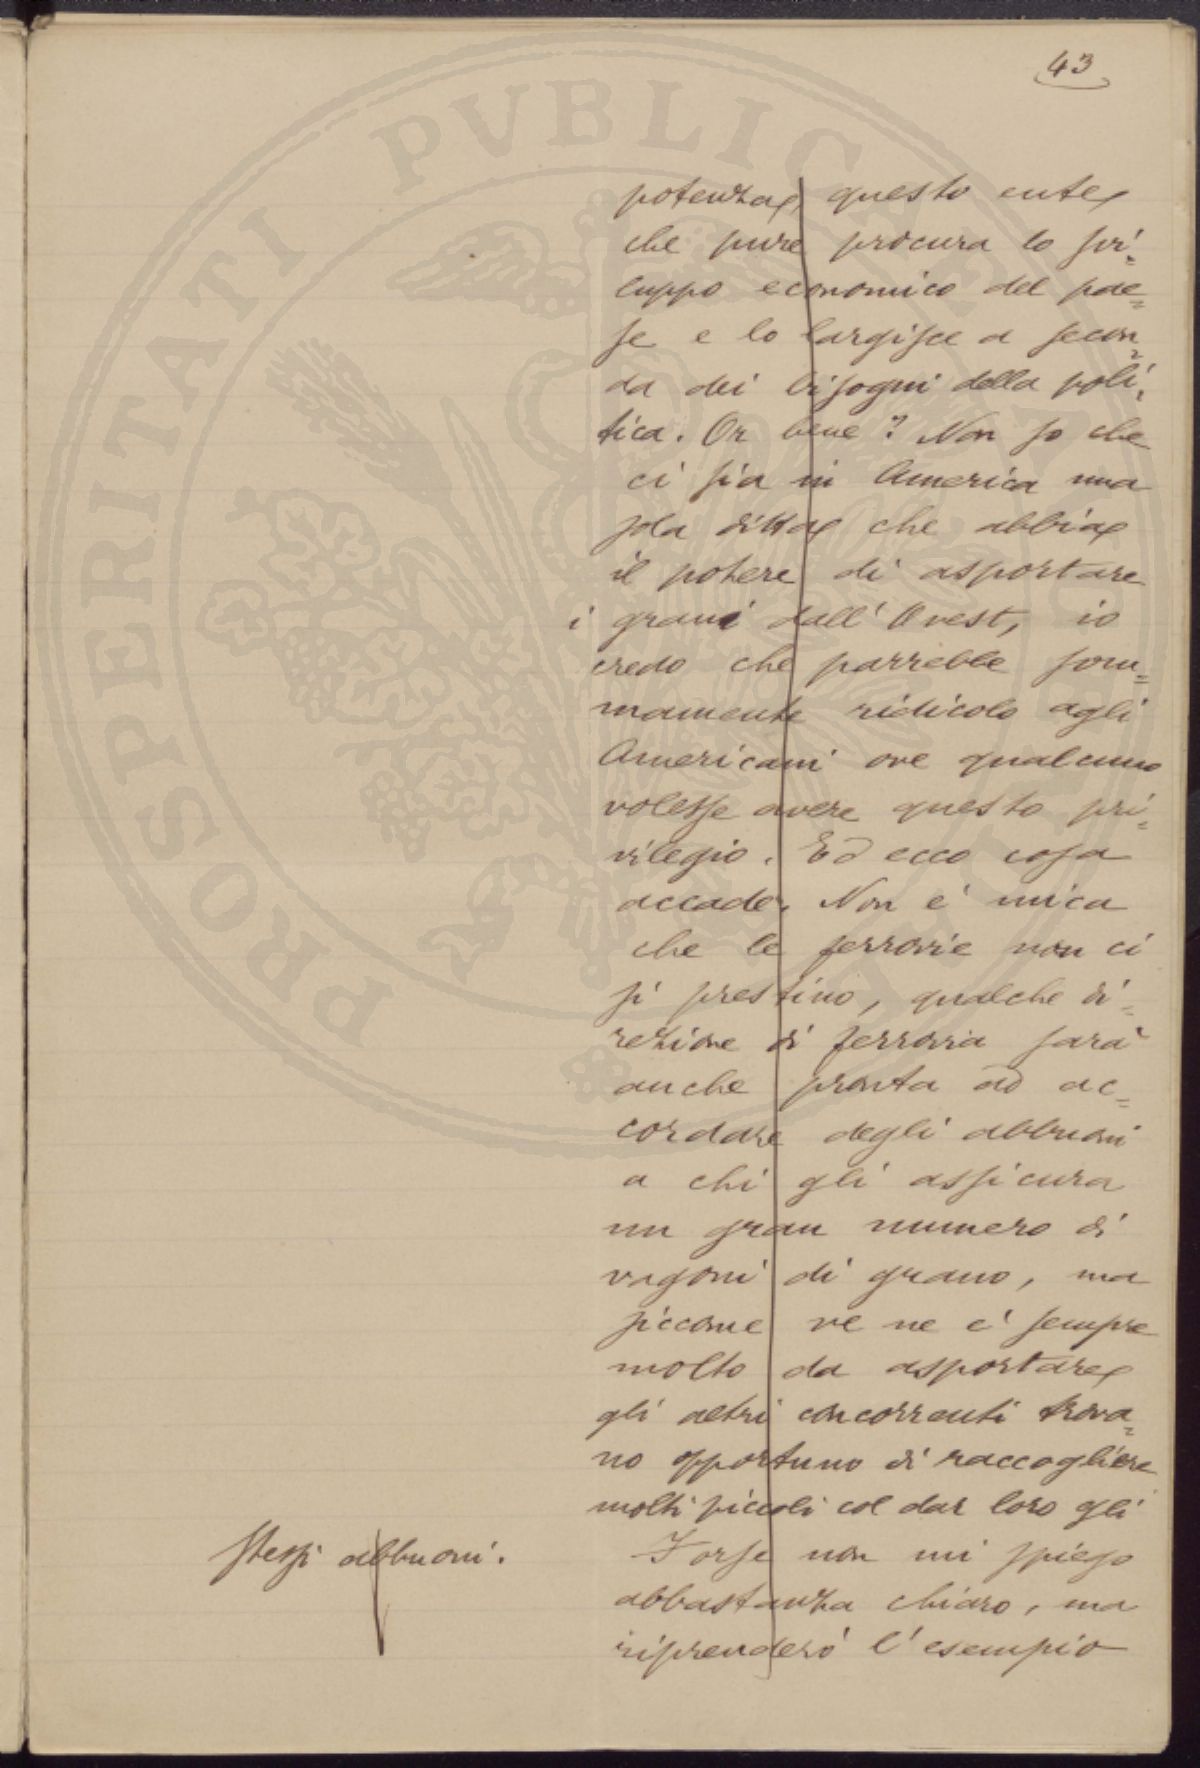 43
potenza, questo ente
che pure procura lo svi-
luppo economico del pae=
se e lo largisce a secon=
da dei bisogni della poli=
tica. Or bene? Non so che
ci sia in America una
sola ditta che abbia
il potere di asportare
i grani dall'Ovest, io
credo che parrebbe som=
mamente ridicolo agli
Americani ove qualcuno
volesse avere questo pri=
vilegio. Ed ecco cosa
accade. Non è mica
che le ferrovie non ci
si prestino, qualche di=
rezione di ferrovia sarà
anche pronta ad ac=
cordare degli abbuoni
a chi gli assicura
un gran numero di
vagoni di grano, ma
siccome ve ne è sempre
molto da asportare
gli altri concorrenti trova=
no opportuno di raccogliere
molti piccoli col dar loro gli
stessi abbuoni.
Forse non mi spiego
abbastanza chiaro, ma
riprenderò l'esempio
PROSPERITATI PVBLICAE